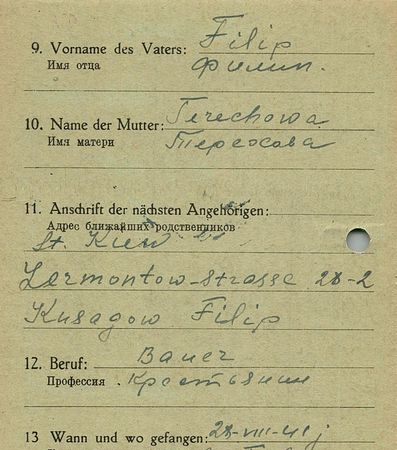 9. Vorname des Vaters: Filip
Имя отца Филип.
10. Name der Mutter: Terechowa
Имя матери Терехова
11. Anschrift der nächsten Angehörigen:
Адрес ближайших родственников
St. Kiew
Lermontow-strasse 28-2
Kusagow Filip
12. Beruf: Bauer
Профессия. Крестьянин
13 Wann und wo gefangen: 28-VIII-41j